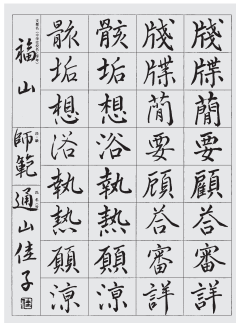 牋牒簡要顧答審詳
牋牒簡要顧答審詳
骸垢想浴執熱願涼
骸垢想浴執熱願涼
福山 師範 通山佳子